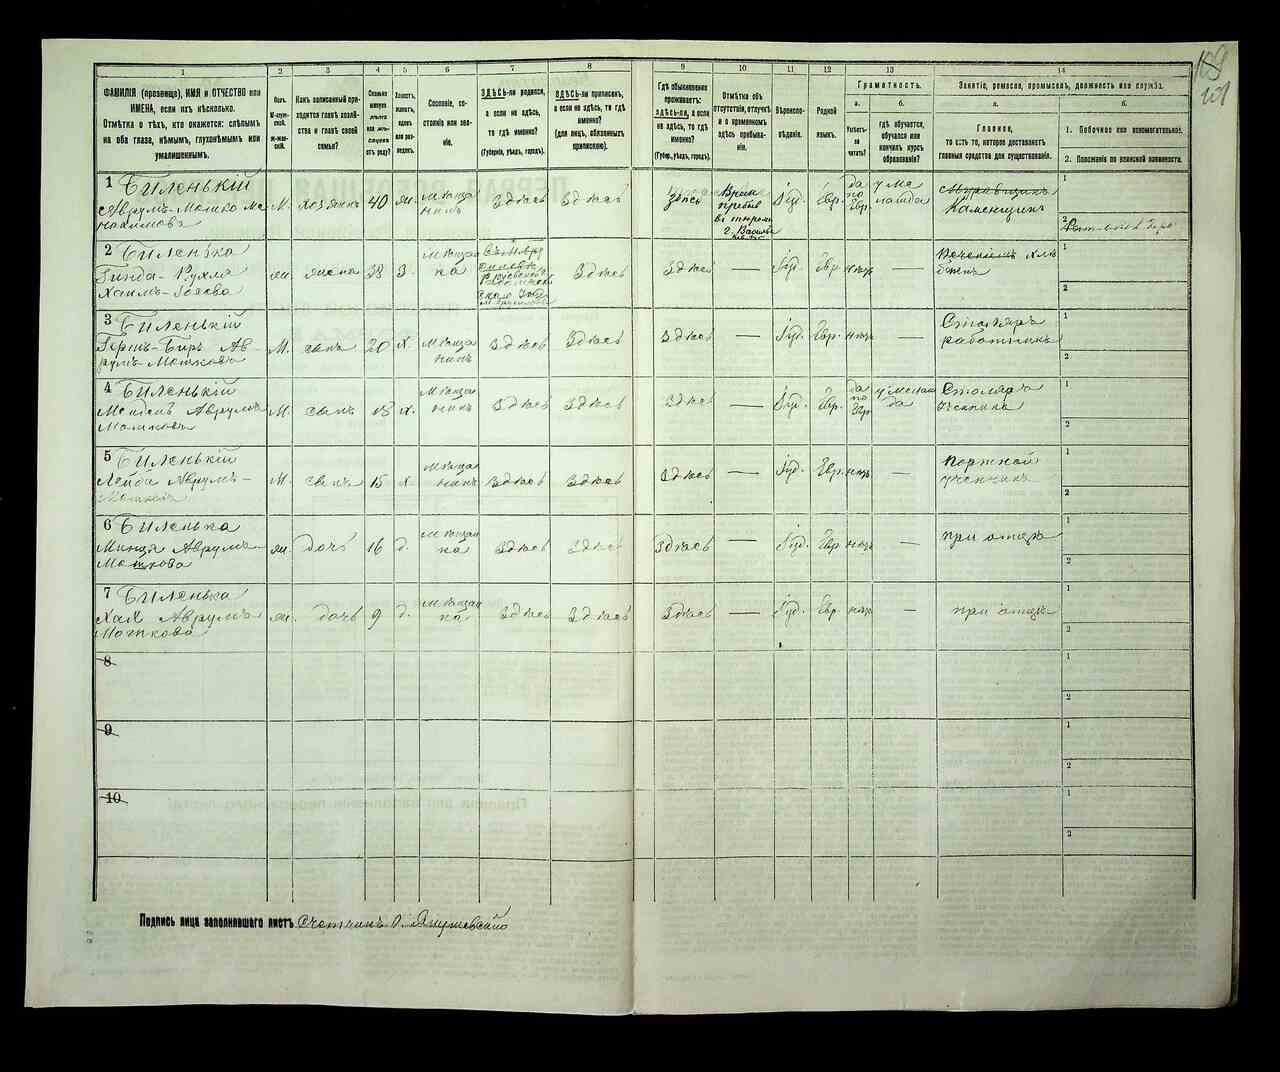 109
101
1 2 3 4 5 6 7 8 9 10 11 12 13 14
ФАМИЛІЯ (прозвище), ИМЯ и ОТЧЕСТВО или
ИМЕНА, если ихъ нѣсколько.
Отмѣтка о тѣхъ, кто окажется: слѣпымъ
на оба глаза, нѣмымъ, глухонѣмымъ или
умалишеннымъ.
Полъ.
М-муж-
ской.
ж-жен-
скій.
Какъ записанный при-
ходится главѣ хозяй-
ства и главѣ своей
семьи?
Сколько
минуло
лѣтъ
или мѣ-
сяцевъ
отъ роду?
Холостъ,
женатъ,
вдовъ
или раз-
веденъ.
Сословіе, со-
стояніе или зва-
ніе.
ЗДѢСЬ-ли родился,
а если не здѣсь,
то гдѣ именно?
(Губернія, уѣздъ, городъ).
ЗДѢСЬ-ли приписанъ,
а если не здѣсь, то гдѣ
именно?
(для лицъ, обязанныхъ
припискою).
Гдѣ обыкновенно
проживаетъ:
здѣсь-ли, а если
не здѣсь, то гдѣ
именно?
(Губер., уѣздъ, городъ).
Отмѣтка объ
отсутствіи, отлучкѣ
и о временномъ
здѣсь пребыва-
ніи.
Вѣроиспо-
вѣданіе.
Родной
языкъ.
Грамотность.
а. б.
Умѣетъ-
ли
читать?
гдѣ обучается,
обучался или
кончилъ курсъ
образованія?
Занятіе, ремесло, промыселъ, должность или служба.
а. б.
Главное,
то есть то, которое доставляетъ
главныя средства для существованія.
1. Побочное или вспомогательное.
2. Положеніе по воинской повинности.
1 Биленькій
Аврумъ-Мошко Ме
нахимовъ
М. хозяинъ 40 ж. мѣща
нинъ
Здѣсь Здѣсь Здѣсь
Врем
Іуд. Евр.
да
по
Евр.
у ме
ламда
Каменщикъ
1
2
2 Биленька
Гинда-Рухля
Хаимъ-
ж. жена 38 З. мѣщан
ка
Здѣсь Здѣсь — Іуд. Евр. нѣтъ —
1
2
3 Биленькій
Герш-Беръ Ав-
румъ-Мошковъ
М. сынъ 20 Х. мѣща
нинъ
Здѣсь Здѣсь Здѣсь — Іуд. Евр. нѣтъ —
Столяръ
работникъ
1
2
4 Биленькій
Мендель Аврумъ
Мошковъ
М. сынъ 18 Х. Мѣща
нинъ
Здѣсь Здѣсь Здѣсь — Іуд. Евр.
да
по
Евр
у мелам
да
Столяръ
ученика
1
2
5 Биленькій
Лейба Аврумъ-
Мошковъ
М. сынъ 15 Х. Мѣща
нинъ
Здѣсь Здѣсь Здѣсь — Іуд. Евр. нѣтъ —
портной
ученикъ
1
2
6 Биленька
Минця Аврумъ-
Мошкова
ж. дочь 16 д. мѣщан
ка
Здѣсь Здѣсь Здѣсь — Іуд. Евр. нѣтъ —
при отцѣ
1
2
7 Биленька
Хая Аврумъ-
Мошкова
ж. дочь 9 д. мѣщан
ка
Здѣсь Здѣсь Здѣсь — Іуд. Евр. нѣтъ —
при отцѣ
1
2
8
1
2
9
1
2
10
1
2
Подпись лица заполнившаго листъ Счетчикъ